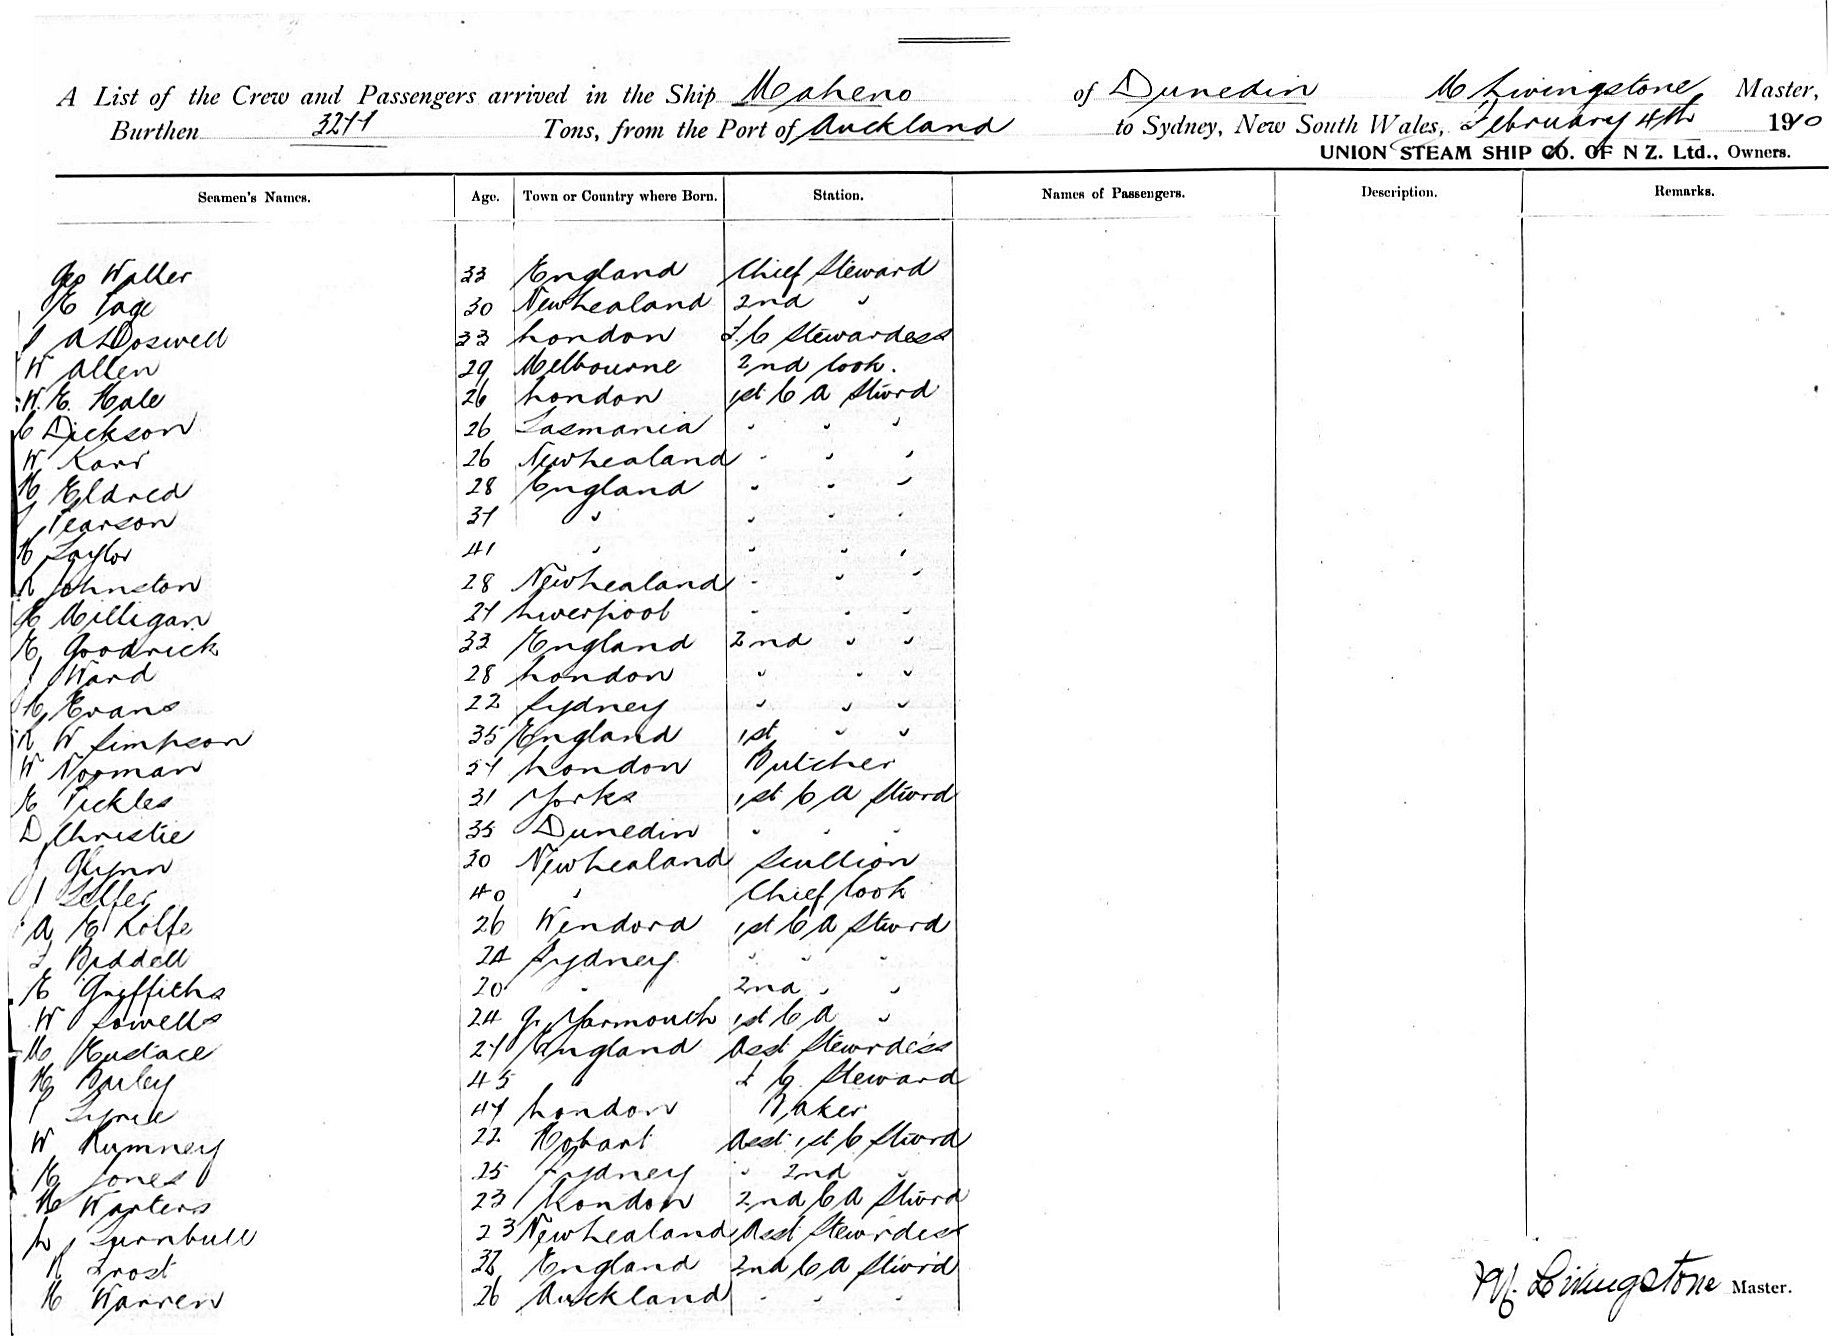 A List of the Crew and Passengers arrived in the Ship Maheno of Dunedin M Livingstone Master,
Burthen Tons, from the Port of Auckland to Sydney, New South Wales, February 4th 1910
UNION STEAM SHIP CO. OF N Z. Ltd., Owners.
Seamen's Names. Age. Town or Country where Born. Station. Names of Passengers. Description. Remarks.
Geo Waller 33 England Chief Steward
E Page 30 New Zealand 2nd "
A Doswell 33 London F. C Stewardess
W Allen 29 Melbourne 2nd Cook.
W. E. Hale 26 London 1st C A Stword
C Dickson 26 Tasmania " " "
W Karr 26 New Zealand " " "
H Eldred 28 England " " "
J Pearson 37 " " " "
H Taylor 41 " " " "
R Johnston 28 New Zealand " " "
E Milligan 27 Liverpool " " "
E Goodrick 33 England 2nd " "
J Ward 28 London " " "
H Evans 22 Sydney " " "
R W Simpson 35 England 1st " "
W Norman 27 London Butcher
E Pickles 31 Yorks 1st C A Stword
D Christie 35 Dunedin " " "
J Glynn 30 New Zealand Scullion
J Telfer 40 " Chief Cook
A E Rolfe 26 1st C A Stword
F Riddell 24 Sydney " " "
E Griffiths 20 " 2nd " "
W Sowells 24 Gr. Yarmouth 1st C A "
M Eustace 27 England Asst Stewrdess
H Burley 45 " F C. Steward
47 London Baker
W Rumney 22 Hobart Asst 1st C Stword
H Jones 25 Sydney " 2nd "
H Warters 23 London 2nd C A Stword
L J Turnbull 23 New Zealand Asst Stewrdess
R Frost England 2nd C A Stwrd
H Warren 26 Auckland " " "
M. Livingstone Master.